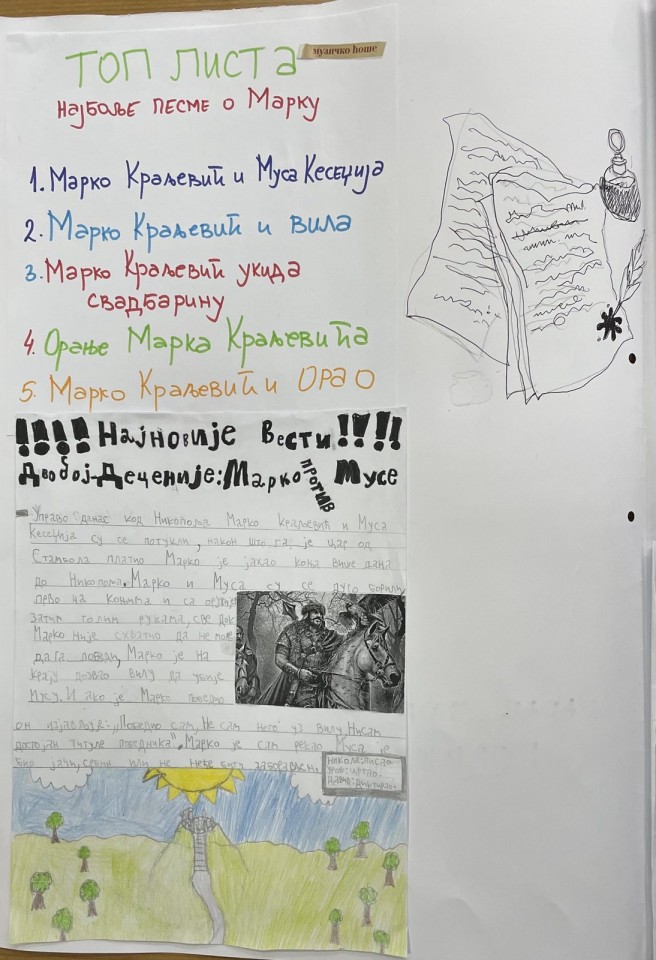 ТОП ЛИСТА
музичко ћоше
НАЈБОЉЕ ПЕСМЕ О МАРКУ
1. МАРКО КРАЉЕВИЋ И МУСА КЕСЕЏИЈА
2. МАРКО КРАЉЕВИЋ И ВИЛА
3. МАРКО КРАЉЕВИЋ УКИДА
СВАДБАРИНУ
4. ОРАЊЕ МАРКА КРАЉЕВИЋА
5. МАРКО КРАЉЕВИЋ И ОРАО
!!!! Најновије вести !!!!
Двобој-Деценије: Марко против Мусе
Управо данас код Никопоља Марко Краљевић и Муса
Кесеџија су се потукли, након што га је цар од
Стамбола платио Марко је јахао коња више дана
до Никопоља. Марко и Муса су се дуго борили
прво на коњима и са оружјем
затим голим рукама, све док
Марко није схватио да не може
да га победи, Марко је на
крају дозвао вилу да убије
Мусу. И ако је Марко победио
он изјављује: „Победио сам, не сам него уз вилу, нисам
достојан титуле победника". Марко је сам рекао Муса је
био јачи, срећни или не неће бити заборављен.
Никола: писао
Урош: цртао